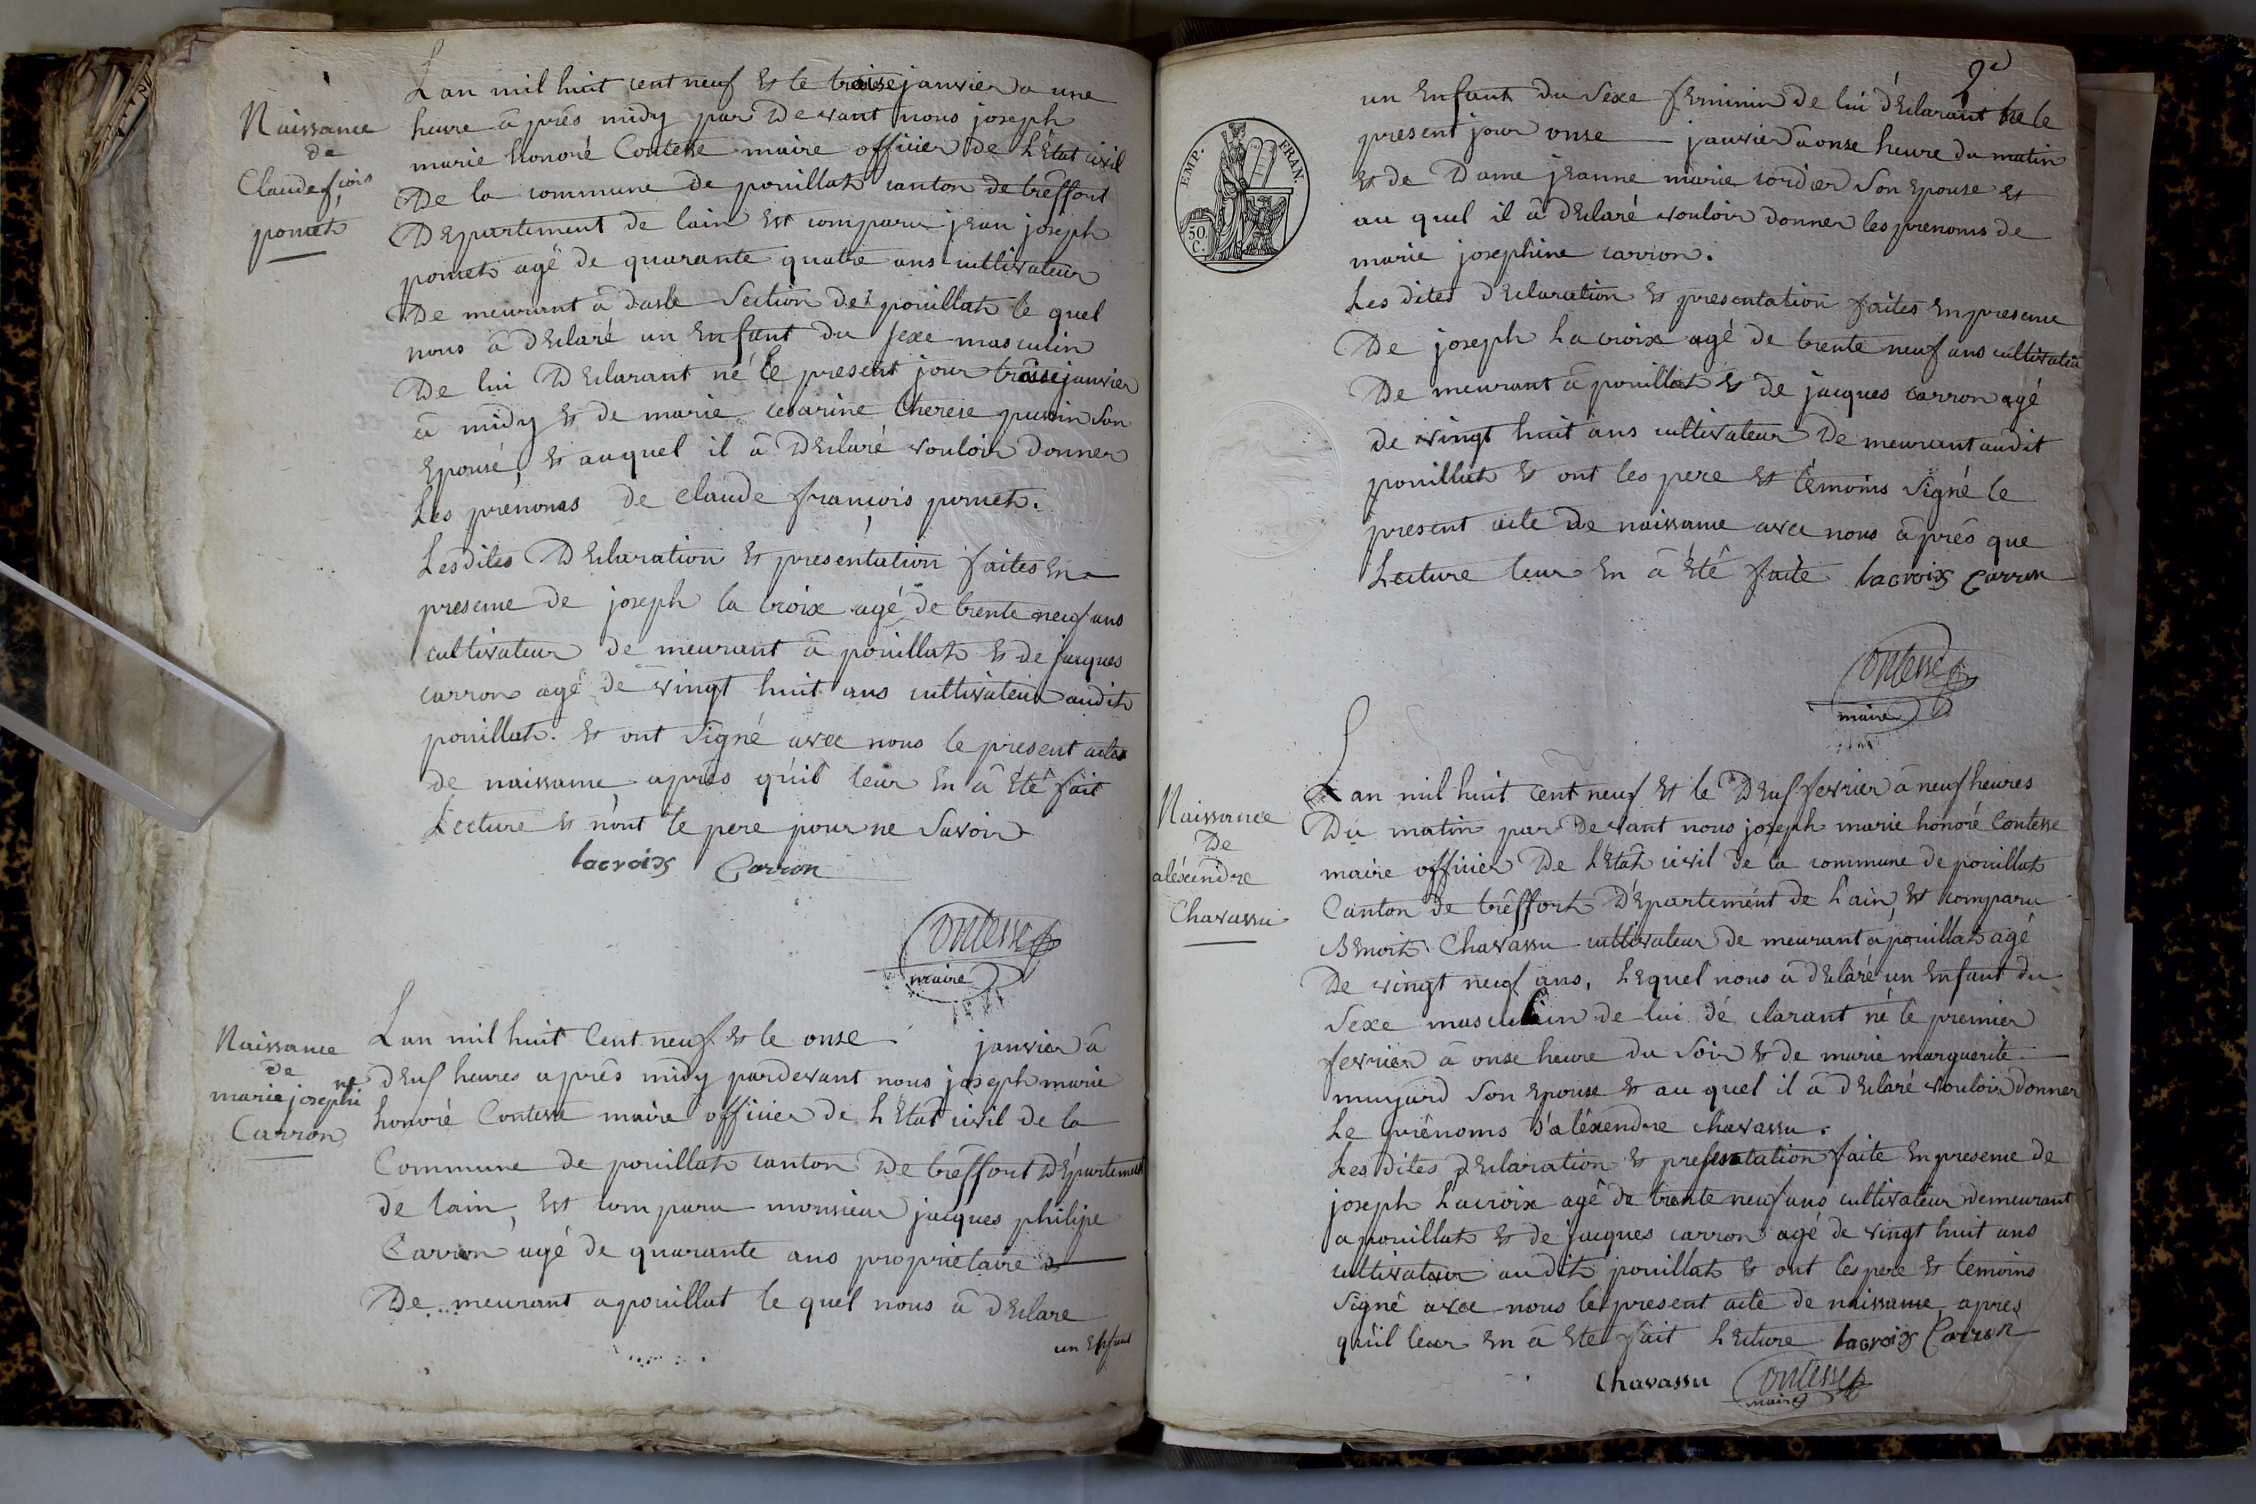 Naissance
de
Claude fçois
pomet
Lan mil huit cent neuf et le treise janvier a une
heure âprés midy par devant nous joseph
marie honoré Contesse maire officier de L'Etat civil
De la commune de pouillat canton de trêffort
Département de lain est comparu jean joseph
pomet agé de quarante quatre ans cultivateur
De meurant â dasle Section de pouillat le quel
nous â Déclaré un Enfant du sexe masculin
De lui Déclarant né le present jour treise janvier
â midy et de marie cesarine therese puvin Son
Epouse, et auquel il â Déclaré vouloir donner
Les prénoms de claude françois pomet.
Lesdites Déclaration et présentation faites En
presence de joseph la croix agé de trente neuf ans
cultivateur de meurant â pouillat et de jacques
carron agé de vingt huit ans cultivateur audit
pouillat. et ont signé avec nous le present acte
de naissance aprés qu'il leur En â Eté fait
Lecture et non le pere pour ne Savoir
lacroix Carron
Contesse
maire
Naissance
de
marie josephine
Carron
Lan mil huit Cent neuf et le onse janvier â
deux heures aprês midy pardevant nous joseph marie
honoré Contesse maire officier de L'Etat civil de la
Commune de pouillat canton De trêffort Département
de lain, est comparu monsieur jacques philipe
Carron agé de quarante ans propriétaire
De meurant a pouillat le quel nous â déclare
un Enfant
2e
EMP. FRAN.
50
C.
un Enfant du Sexe feminin de lui déclarant né le
present jour onse janvier â onse heure du matin
et de Dame jeanne marie cordier Son Epouse et
au quel il â déclaré vouloir donner les prenoms de
marie josephine carron.
Les dites déclaration et presentation faites En presence
De joseph Lacroix agé de trente neuf ans cultivateur
De meurant â pouillat et de jacques carron agé
de vingt huit ans cultivateur De meurant audit
pouillat et ont les pere et têmoins signé le
present acte de naissance avec nous âprês que
Lecture leur En â Étê faite lacroix Carron
Contesse
maire
Naissance
De
aléxendre
Chavassu
Lan mil huit Cent neuf et le Deux fevrier â neuf heures
Du matin par Devant nous joseph marie honoré Contesse
maire officier De L'Etat civil de la commune de pouillat
Canton de trêffort Département de L'ain, est comparu
Benoit Chavassu cultivateur de meurant a pouillat agé
De vingt neuf ans, Lequel nous a déclaré un Enfant du
Sexe masculin de lui dé clarant né le premier
fevrier â onse heure du Soir et de marie marguerite
munjard Son Epouse et au quel il â déclaré vouloir donner
Le prênoms d'aléxendre chavassu.
Les dites déclaration et presentation faite En presence de
joseph Lacroix agé de trente neuf ans cultivateur demeurant
a pouillat et de jacques carron agé de vingt huit ans
cultivateur audit pouillat et ont les pere et temoins
signé avec nous le present acte de naissance aprés
qu'il leur En â Ete fait Lecture lacroix Carron
Chavassu Contesse
maire